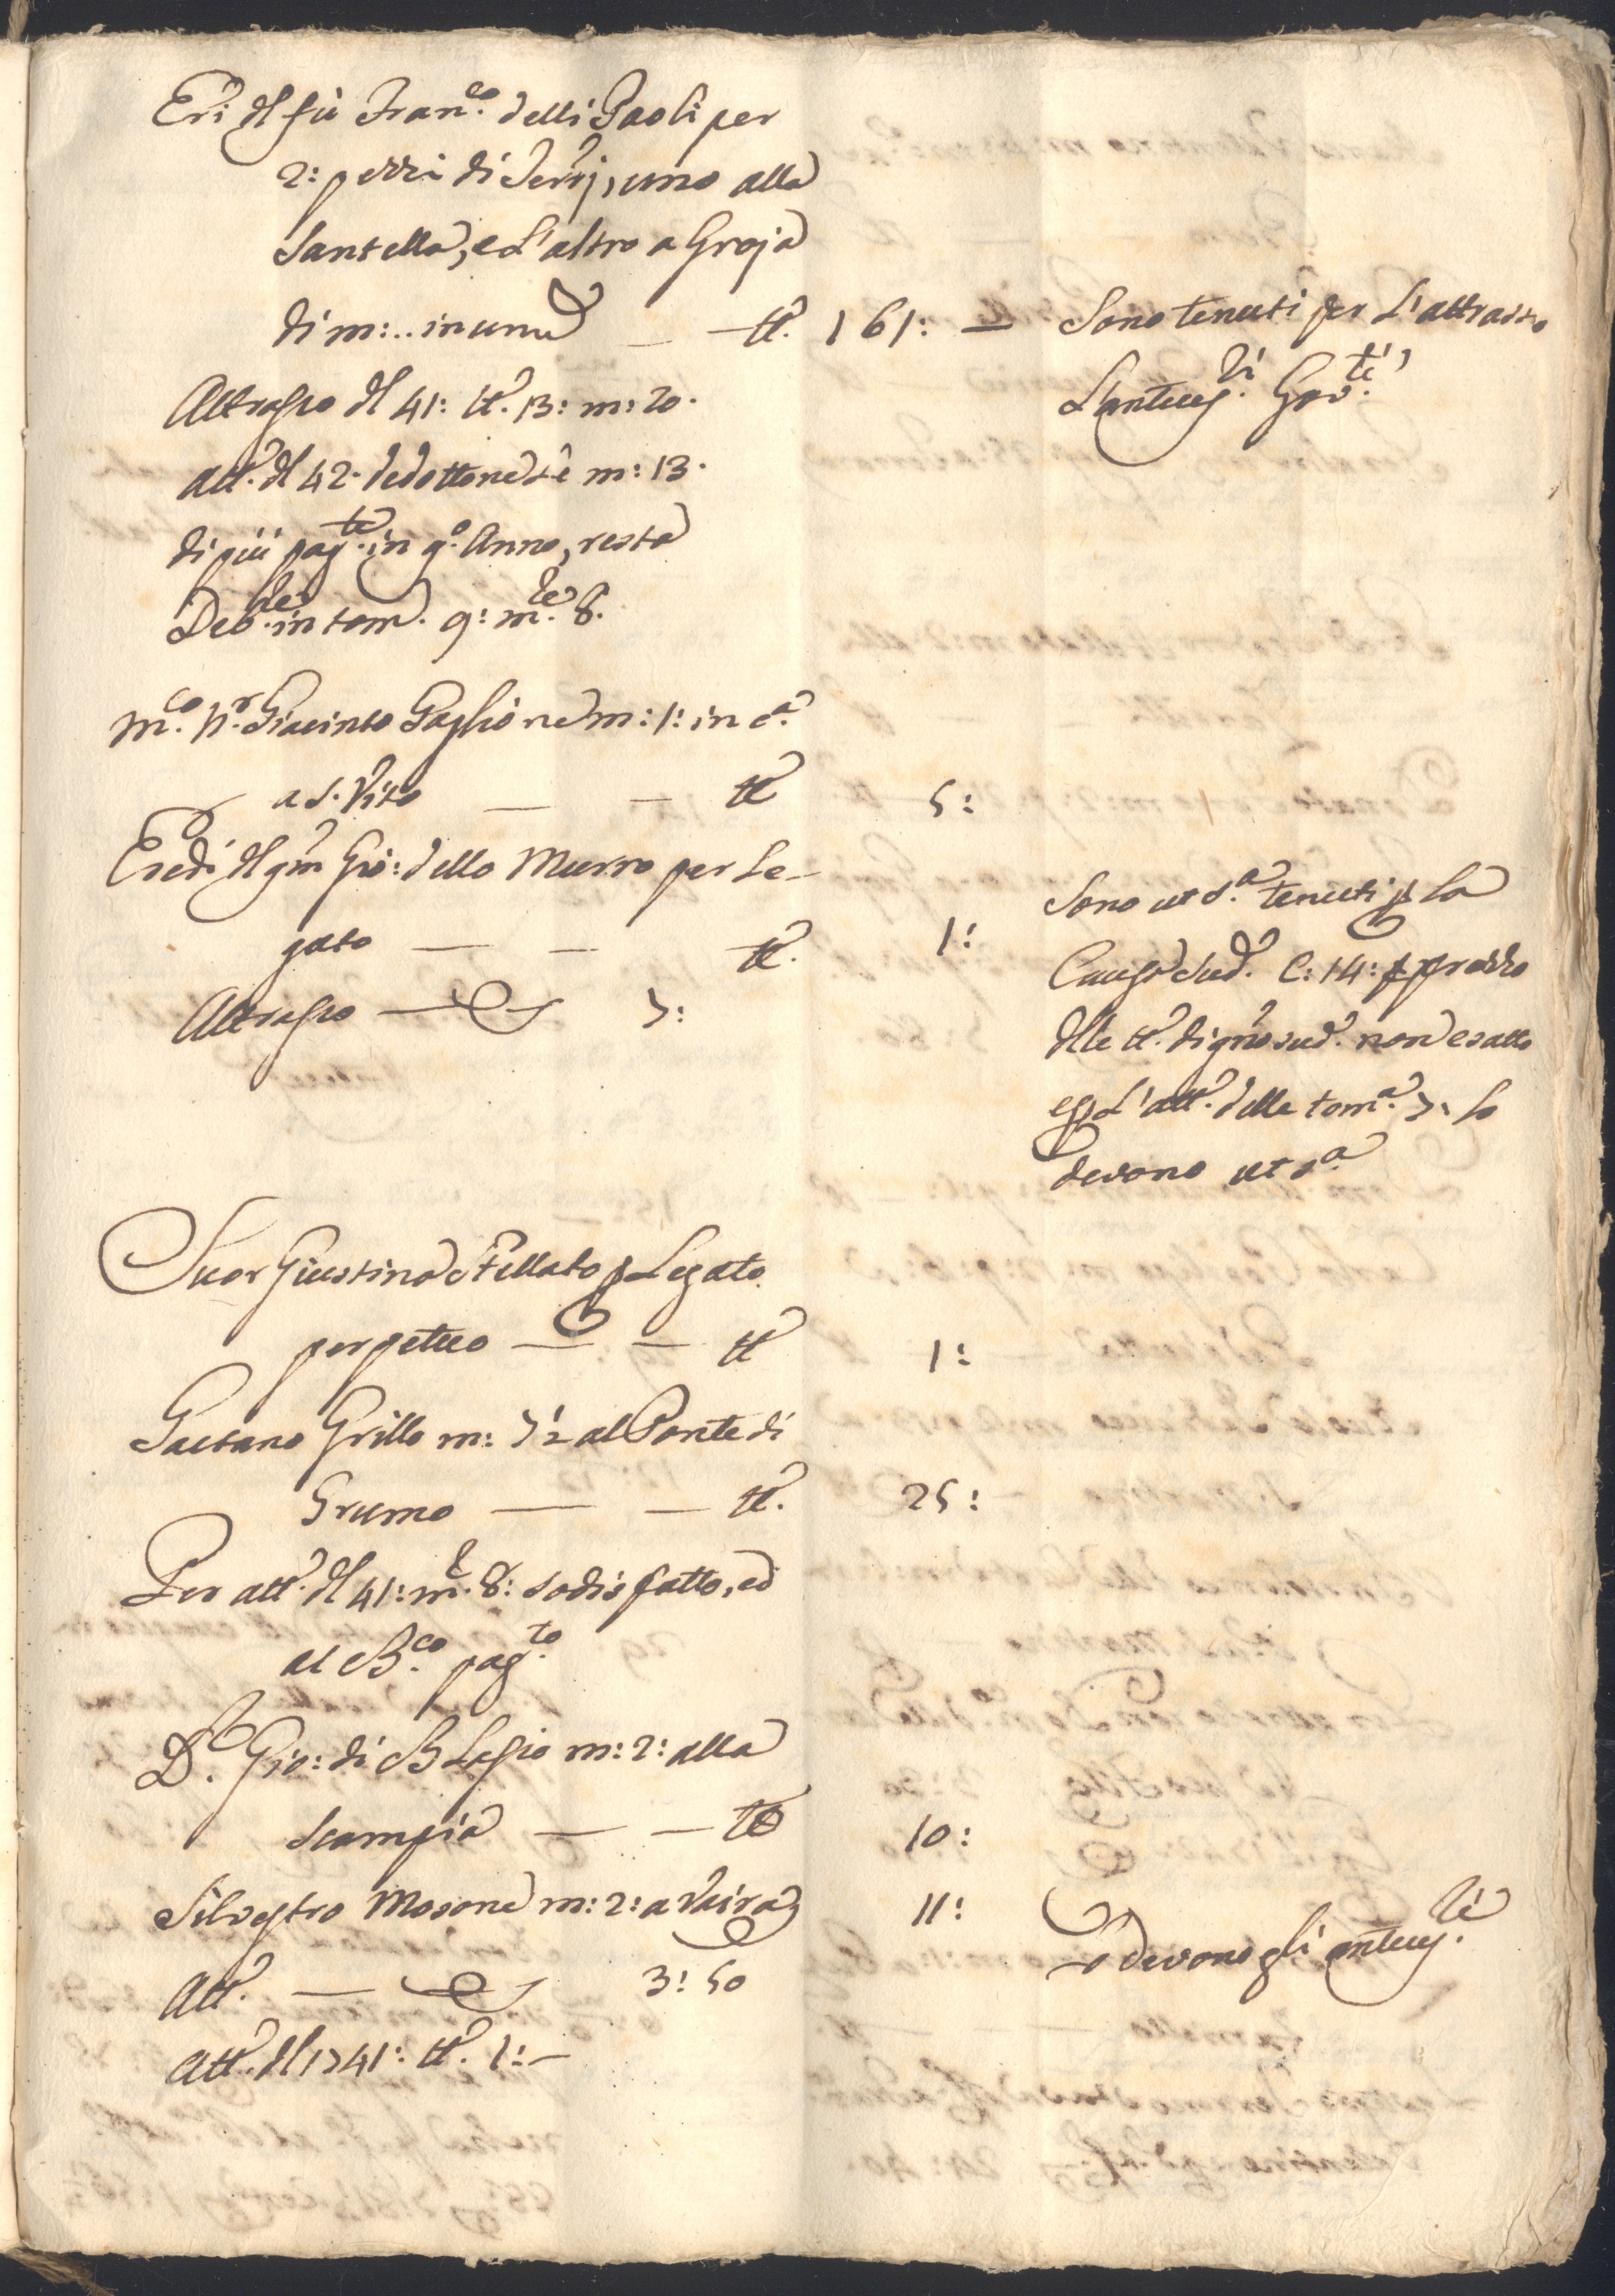 Er.i dl fù Fran.co delli Paoli per
2: pezzi di Terrij, uno alla
Santella, e L'altro a Groja
di m: .. in unu _ _ tt.a 161: _
Sono tenuti per L'attrasso
L'anteces.ri Gov.ti
Attrasso dl 41: tt.a 13: m: 20.
att.o dl 42. dedottone Lē m: 13.
di più pag.te in q.o Anno, resta
Deb.re in tom. 9: m.e 8.
M.co N.r Giacinto Paglione m: 1: in c.a
a S. Vito _ _ tt.a 5:
Eredi dl qm Gio: dello Murro per Le-
gato _ _ tt.a 1:
Attrasso _ 7:
Sono ut s.a tenuti p La
Causa sud.a C: 14: p prezzo
dlle tt.a di grno sud.o non esatto
e p L'att.o delle tom.a 7: Lo
devono ut s.a
Suor Giustina Stellato p Legato
perpetuo _ _ tt.a 1:
Gaetano Grillo m: 7½ al Ponte di
Grumo _ _ tt.a 25:
Per att.o dl 41: m.e 8: sodisfatto, ed
al B.co pag.to
D. Gio: di Blasio m: 2: alla
Scampia _ _ tt.a 10:
Silvestro Mosone m: 2: a 11:
Lo devono gli anteces.ri
Att.o _ 3: 50
Att.o dl 1741: tt.a 1: _